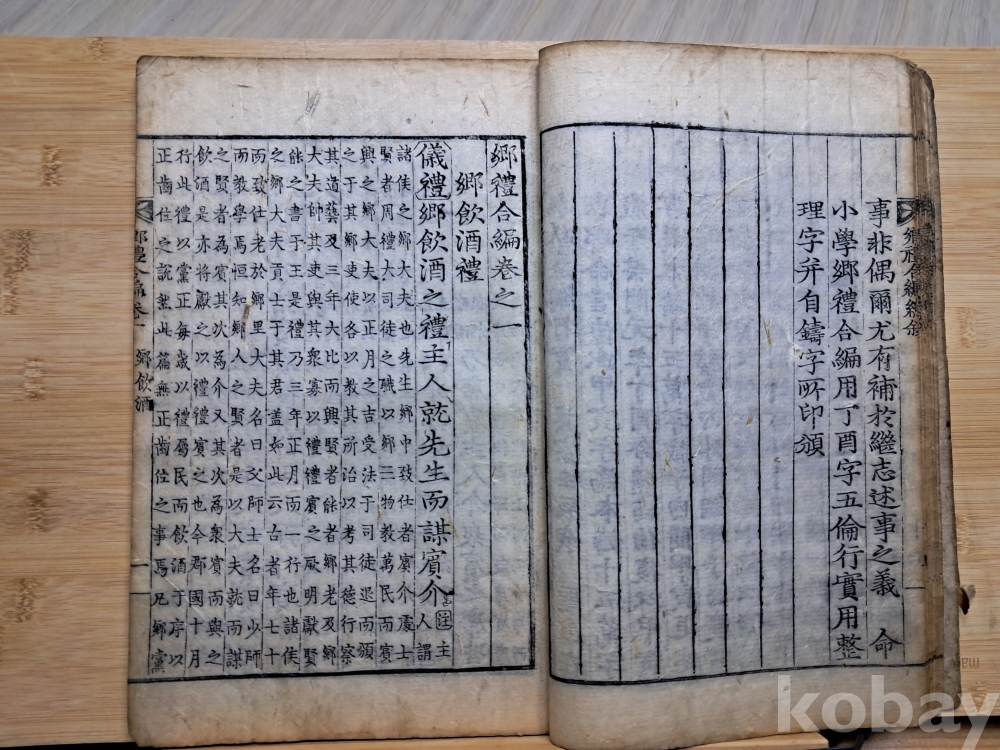 事非偶爾尤有補於繼志述事之義 命
小學鄉禮合編用丁酉字五倫行實用整
理字并自鑄字所印頒
鄉禮合編卷之一
鄉飲酒禮
儀禮鄉飲酒之禮主人就先生而謀賓介註主人謂
諸侯之鄉大夫也先生鄉中致仕者賓介處士
賢者周禮大司徒之職以鄉三物教萬民而賓
興之鄉大夫以正月之吉受法于司徒退而頒
之于其鄉吏使各以教其所治以考其德行察
其道藝及三年大比而興賢者能者鄉老及鄉
大夫帥其吏與其衆寡以禮禮賓之厥明獻賢
能之書于王是禮乃三年正月而一行也諸侯
之鄉大夫貢士于其君盖如此云古者年七十
而致仕老於鄉里大夫名曰父師士名曰少師
而教學焉恒知鄉人之賢者是以大夫就而謀
之賢者為賓其次為介又其次為衆賓而與之
飲酒是亦將獻之以禮禮賓之也今郡國十月
行此禮以黨正每歲以禮屬民而飲酒于序以
正齒位之說然此篇無正齒位之事焉凡鄉黨
鄉禮合編卷一 鄉飲酒 一
kobay